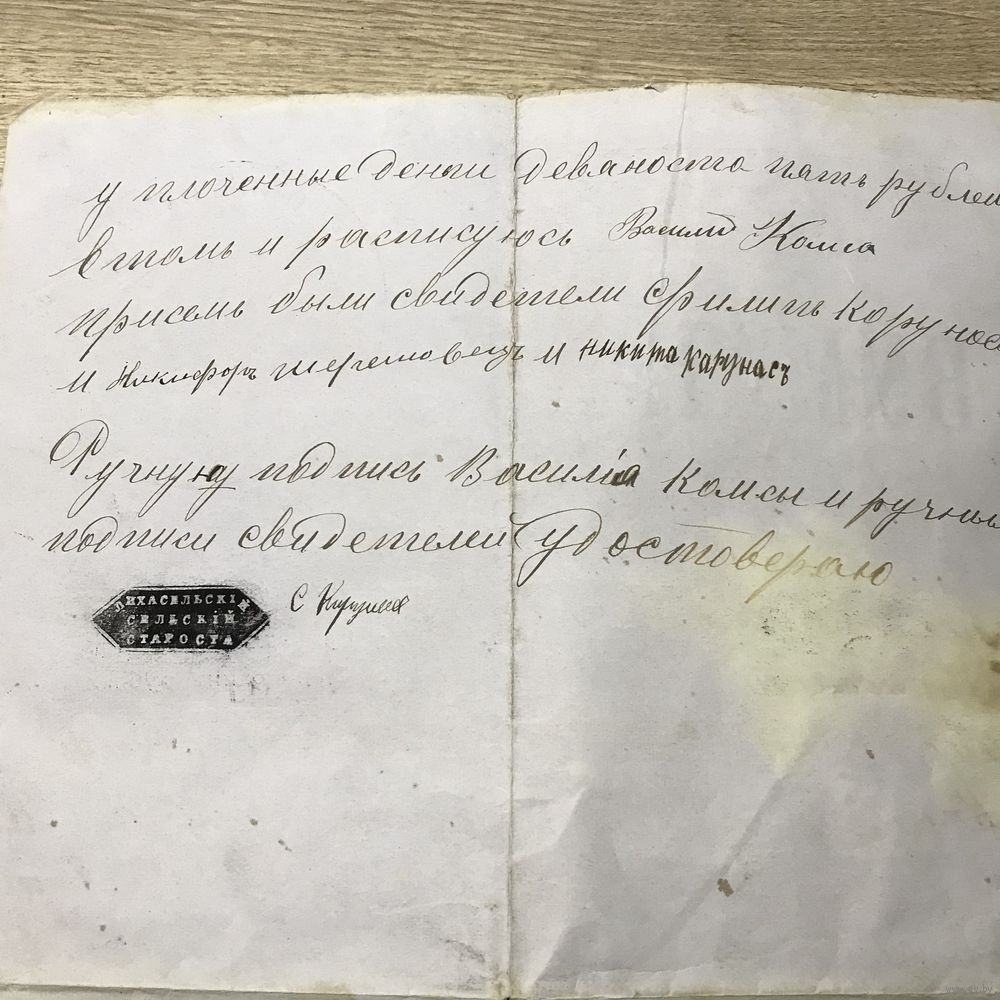 уплоченные деньги девяносто пять рублей
втомъ и расписуюсь Василий Комса
присемъ были свидетели Филипъ Карунос
и Никифоръ шереметовецъ и никита карунасъ
Ручную подпись Василія Комсы и ручные
подписи свидетелей Удостоверяю
ЛИХАСЕЛЬСКІЙ
СЕЛЬСКІЙ
СТАРОСТА
С
www.ay.by